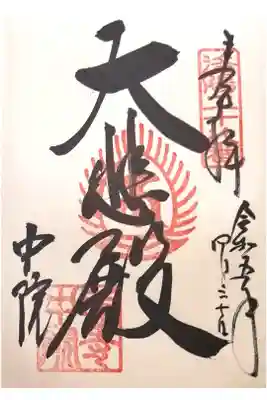 奉拝
大悲殿
令和五年
四月三十日
中院